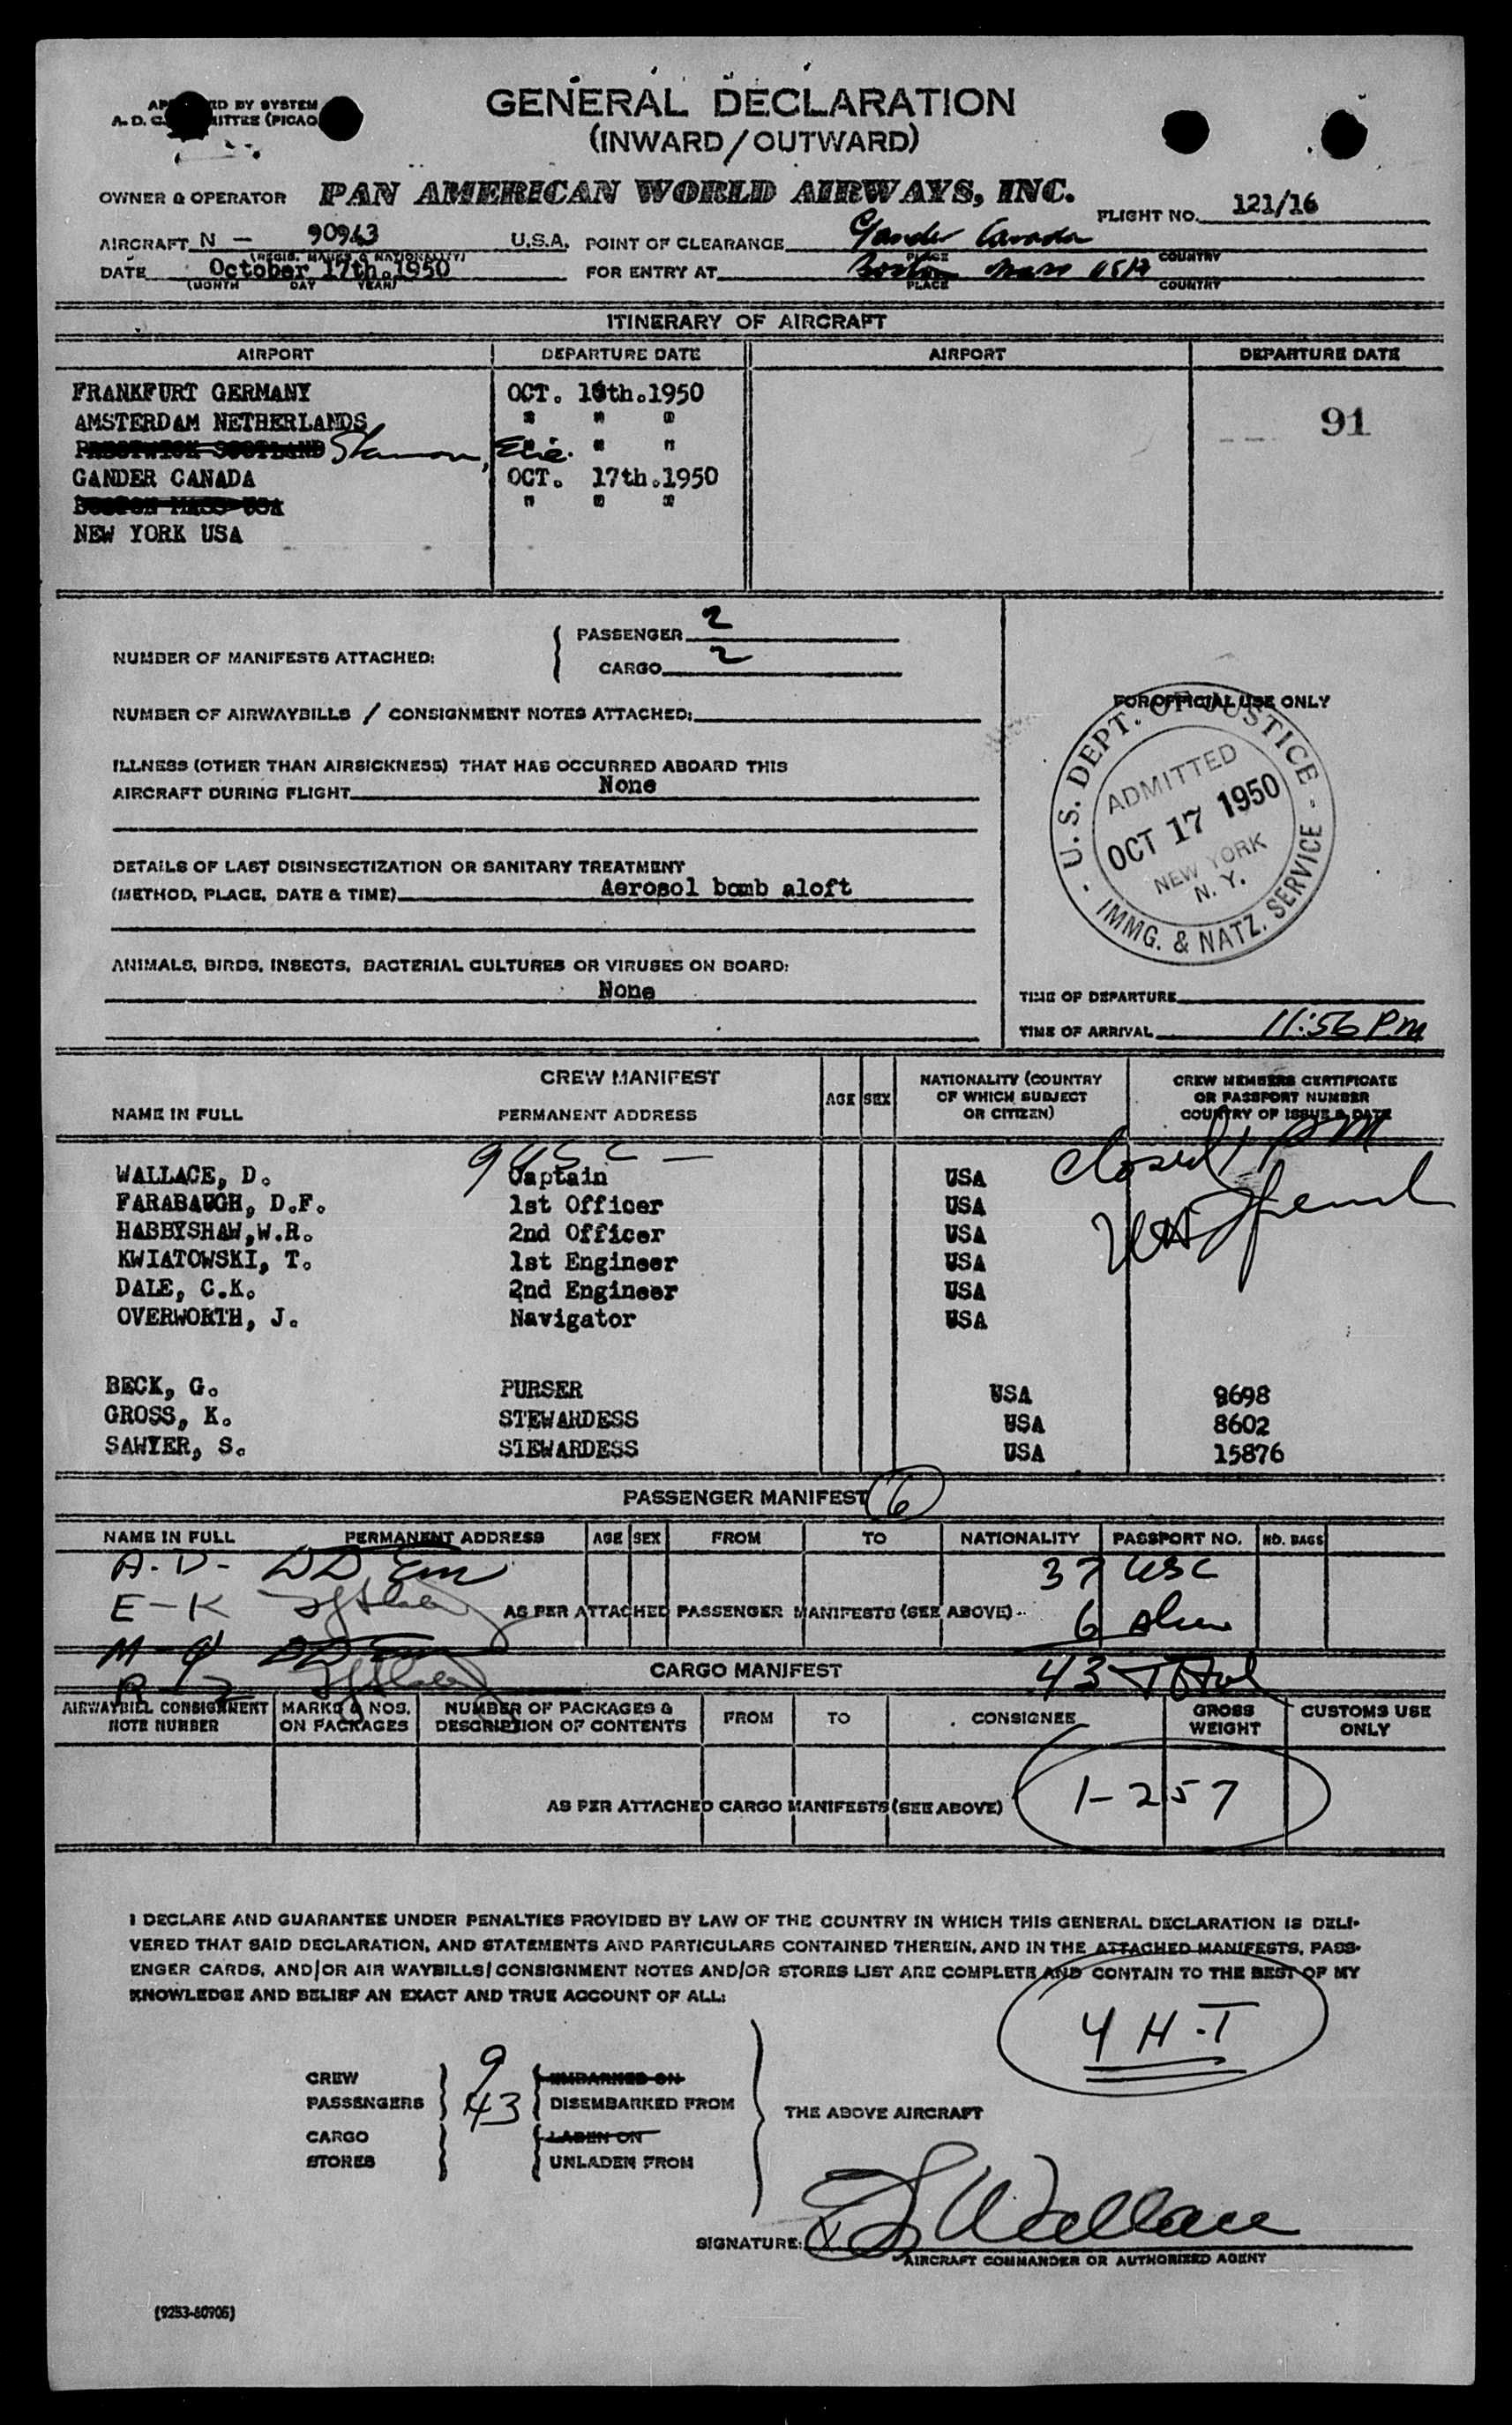 GENERAL DECLARATION
(INWARD/OUTWARD)
BY SYSTEM
A. D. C. (PICAO
OWNER & OPERATOR PAN AMERICAN WORLD AIRWAYS, INC. FLIGHT NO. 121/16
AIRCRAFT N - 90943 U.S.A. POINT OF CLEARANCE Gander Canada
(REGIS. MARKS & NATIONALITY) PLACE COUNTRY
DATE October 17th.1950 FOR ENTRY AT Boston Mass USA
(MONTH DAY YEAR) PLACE COUNTRY
ITINERARY OF AIRCRAFT
AIRPORT DEPARTURE DATE AIRPORT DEPARTURE DATE
FRANKFURT GERMANY OCT. 16th.1950
AMSTERDAM NETHERLANDS " " "
PRESTWICK SCOTLAND Shannon, Eire. " "
GANDER CANADA OCT. 17th.1950
BOSTON MASS USA " " "
NEW YORK USA
91
NUMBER OF MANIFESTS ATTACHED:
PASSENGER 2
CARGO 2
NUMBER OF AIRWAYBILLS / CONSIGNMENT NOTES ATTACHED:
ILLNESS (OTHER THAN AIRSICKNESS) THAT HAS OCCURRED ABOARD THIS
AIRCRAFT DURING FLIGHT None
DETAILS OF LAST DISINSECTIZATION OR SANITARY TREATMENT
(METHOD, PLACE, DATE & TIME) Aerosol bomb aloft
ANIMALS, BIRDS, INSECTS, BACTERIAL CULTURES OR VIRUSES ON BOARD:
None
FOR OFFICIAL USE ONLY
U.S. DEPT. OF JUSTICE - IMMG. & NATZ. SERVICE -
ADMITTED
OCT 17 1950
NEW YORK
N. Y.
TIME OF DEPARTURE
TIME OF ARRIVAL 11:56 PM
CREW MANIFEST
NAME IN FULL PERMANENT ADDRESS AGE SEX NATIONALITY (COUNTRY OF WHICH SUBJECT OR CITIZEN) CREW MEMBERS CERTIFICATE OR PASSPORT NUMBER COUNTRY OF ISSUE & DATE
9 USC
closed 1 PM
WALLACE, D. Captain USA
FARABAUGH, D.F. 1st Officer USA
HABBYSHAW,W.R. 2nd Officer USA
KWIATOWSKI, T. 1st Engineer USA
DALE, C.K. 2nd Engineer USA
OVERWORTH, J. Navigator USA
BECK, G. PURSER USA 8698
GROSS, K. STEWARDESS USA 8602
SAWYER, S. STEWARDESS USA 15876
PASSENGER MANIFEST 6
NAME IN FULL PERMANENT ADDRESS AGE SEX FROM TO NATIONALITY PASSPORT NO. NO. BAGS
A-D- 37 USC
E-K AS PER ATTACHED PASSENGER MANIFESTS (SEE ABOVE) 6 Alien
CARGO MANIFEST 43 Total
R-Z
AIRWAYBILL CONSIGNMENT NOTE NUMBER MARKS & NOS. ON PACKAGES NUMBER OF PACKAGES & DESCRIPTION OF CONTENTS FROM TO CONSIGNEE GROSS WEIGHT CUSTOMS USE ONLY
AS PER ATTACHED CARGO MANIFESTS (SEE ABOVE) 1-257
I DECLARE AND GUARANTEE UNDER PENALTIES PROVIDED BY LAW OF THE COUNTRY IN WHICH THIS GENERAL DECLARATION IS DELI-
VERED THAT SAID DECLARATION, AND STATEMENTS AND PARTICULARS CONTAINED THEREIN, AND IN THE ATTACHED MANIFESTS, PASS-
ENGER CARDS, AND/OR AIR WAYBILLS/CONSIGNMENT NOTES AND/OR STORES LIST ARE COMPLETE AND CONTAIN TO THE BEST OF MY
KNOWLEDGE AND BELIEF AN EXACT AND TRUE ACCOUNT OF ALL:
4 H.T
CREW 9 EMBARKED ON
PASSENGERS 43 DISEMBARKED FROM
THE ABOVE AIRCRAFT
CARGO LADEN ON
STORES UNLADEN FROM
SIGNATURE: X Wallace
AIRCRAFT COMMANDER OR AUTHORIZED AGENT
(9253-80905)